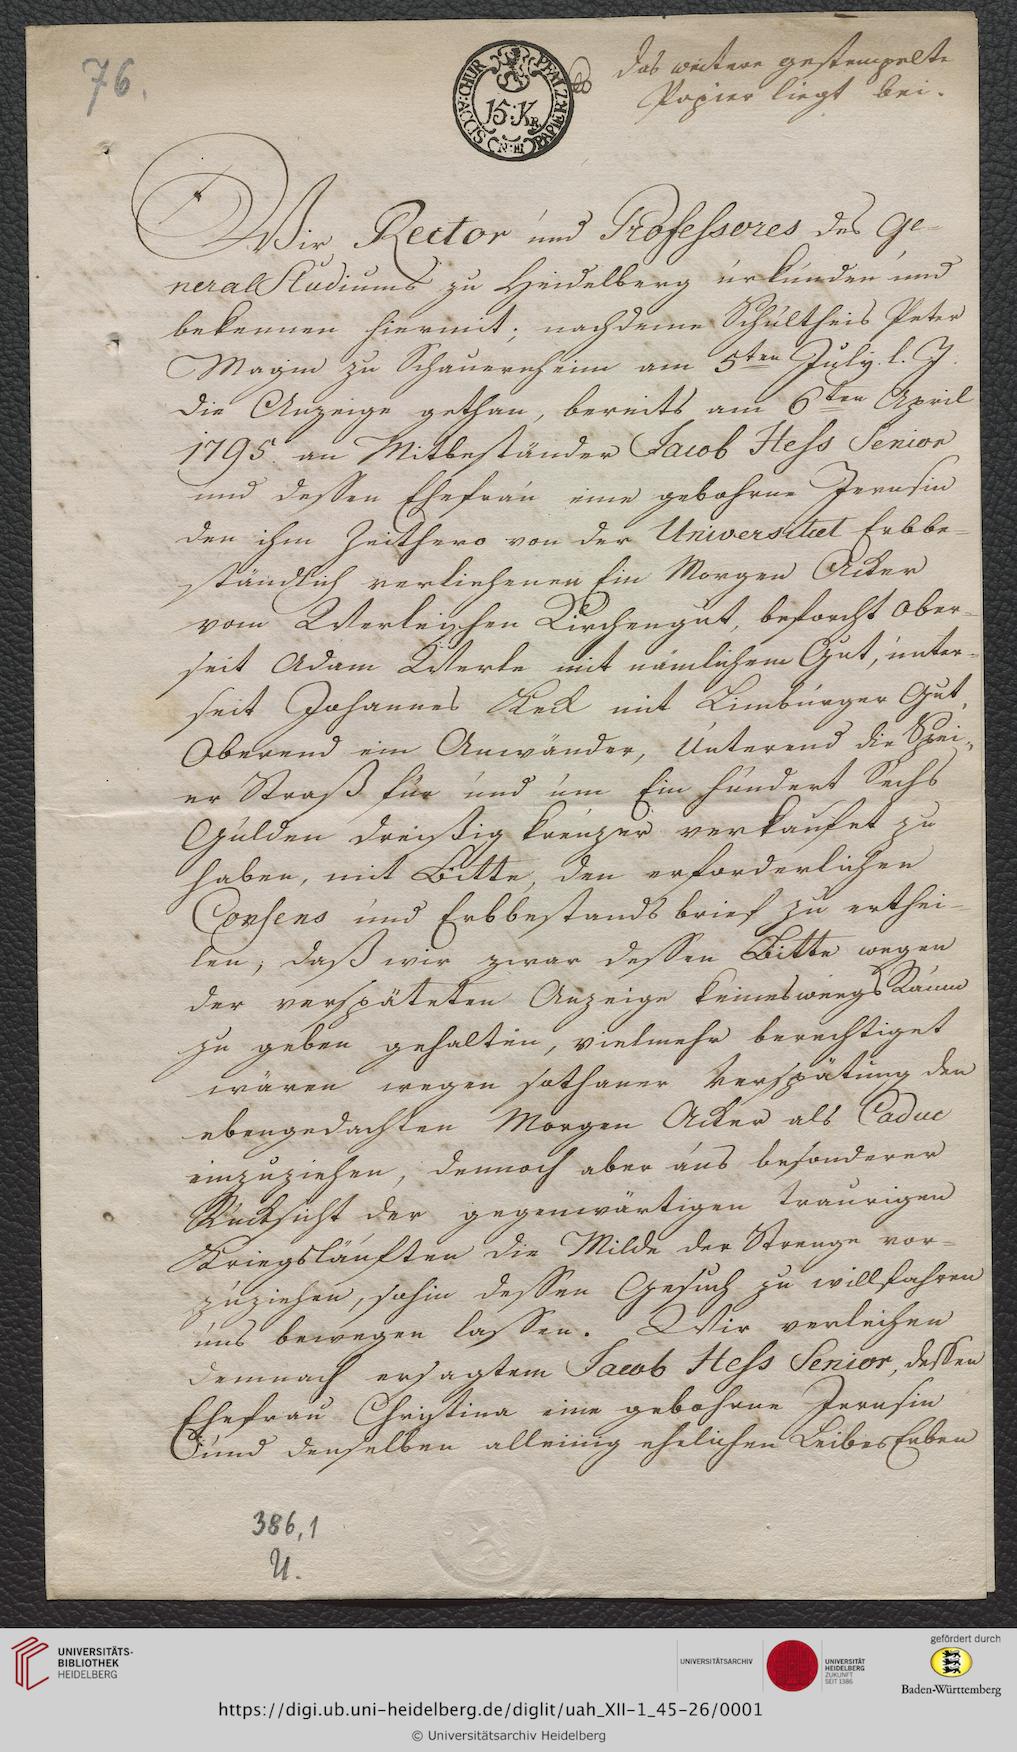 76.
Das weitere gestempelte
Papier liegt bei.
SICCAV: CHUR PFALZ: PAPIER
15:Kr
N: III
Wir Rector und Professores des Ge-
neral Studiums zu Heidelberg urkunden und
bekennen hiermit; nachdeme Schultheis Peter
Magin zu Schauernheim am 5ten July l. J.
die Anzeige gethan, bereits am 6ten April
1795 an Mitbeständer Jacob Hess Senior
und dessen Ehefrau eine gebohrne
den ihm Zeithero von der Universitaet Erbbe-
ständlich verliehenen Ein Morgen Acker
vom Kirchengut, beforcht ober-
seit Adam Werle mit nämlichem Gut, unter-
seit Johannes Keck mit Limburger Gut,
Oberend ein Anwänder, Unterend die Spei-
er Straß für und um Ein hundert Sechs
Gulden dreißig kreuzer verkaufet zu
haben, mit Bitte, den erforderlichen
Consens und Erbbestandsbrief zu erthei-
len; daß wir zwar dessen Bitte wegen
der verspäteten Anzeige keineswegs Raum
zu geben gehalten, vielmehr berechtiget
wären wegen sothaner Verspätung den
ebengedachten Morgen Acker als Caduc
einzuziehen, dennoch aber aus besonderer
Rücksicht der gegenwärtigen traurigen
Kriegsläuften die Milde der Strenge vor-
zuziehen, sohin dessen Gesuch zu willfahren
uns bewegen lassen. Wir verleihen
demnach ersagtem Jacob Hess Senior, dessen
Ehefrau Christina eine gebohrne
und denselben alleinig ehelichen LeibesErben
386,1
U.
UNIVERSITÄTS-
BIBLIOTHEK
HEIDELBERG
UNIVERSITÄTSARCHIV
UNIVERSITÄT
HEIDELBERG
ZUKUNFT
SEIT 1386
gefördert durch
Baden-Württemberg
https://digi.ub.uni-heidelberg.de/diglit/uah_XII-1_45-26/0001
© Universitätsarchiv Heidelberg